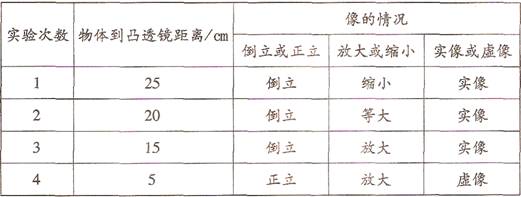 实验次数 物体到凸透镜距离/cm 像的情况
倒立或正立 放大或缩小 实像或虚像
1 25 倒立 缩小 实像
2 20 倒立 等大 实像
3 15 倒立 放大 实像
4 5 正立 放大 虚像